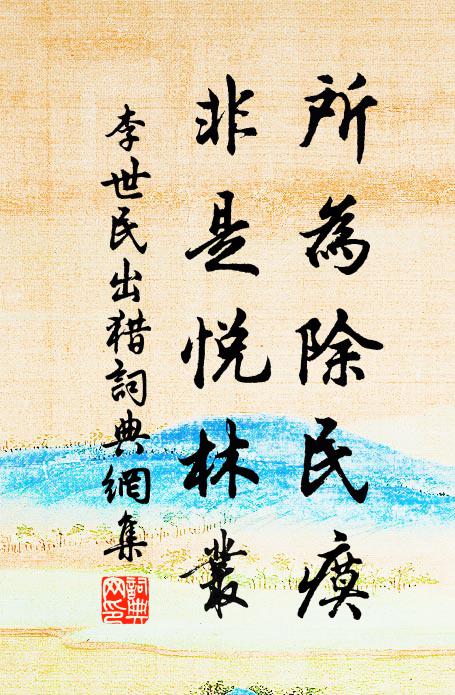 所為除民瘼
非是悅林叢
李世民出猎詞典網集